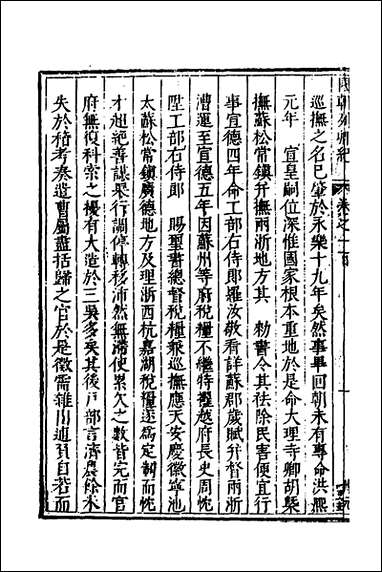 國朝列卿紀 卷之一百
巡撫之名已肇於永樂十九年矣然事畢回朝未有專命洪熙
元年 宣皇嗣位深惟國家根本重地於是命大理寺卿胡槩
撫蘇松常鎮并撫兩浙地方其 勑書令其祛除民害便宜行
事宣德四年命工部右侍郎羅汝敬看詳蘇郡歲賦并督兩浙
漕運至宣德五年因蘇州等府稅糧不繼特擢越府長史周忱
陞工部右侍郎 賜璽書總督稅糧兼巡撫應天安慶徽寧池
太蘇松常鎮廣德地方及理浙西杭嘉湖稅糧遂爲定制而忱
才超絶善謀果行調停轉移沛然無滯使累欠之數皆完而官
府無復科索之擾有大造於三吳多矣其後戶部言濟農餘米
失於稽考奏遣曹屬盡括歸之官於是徵需雜出逋負自若而